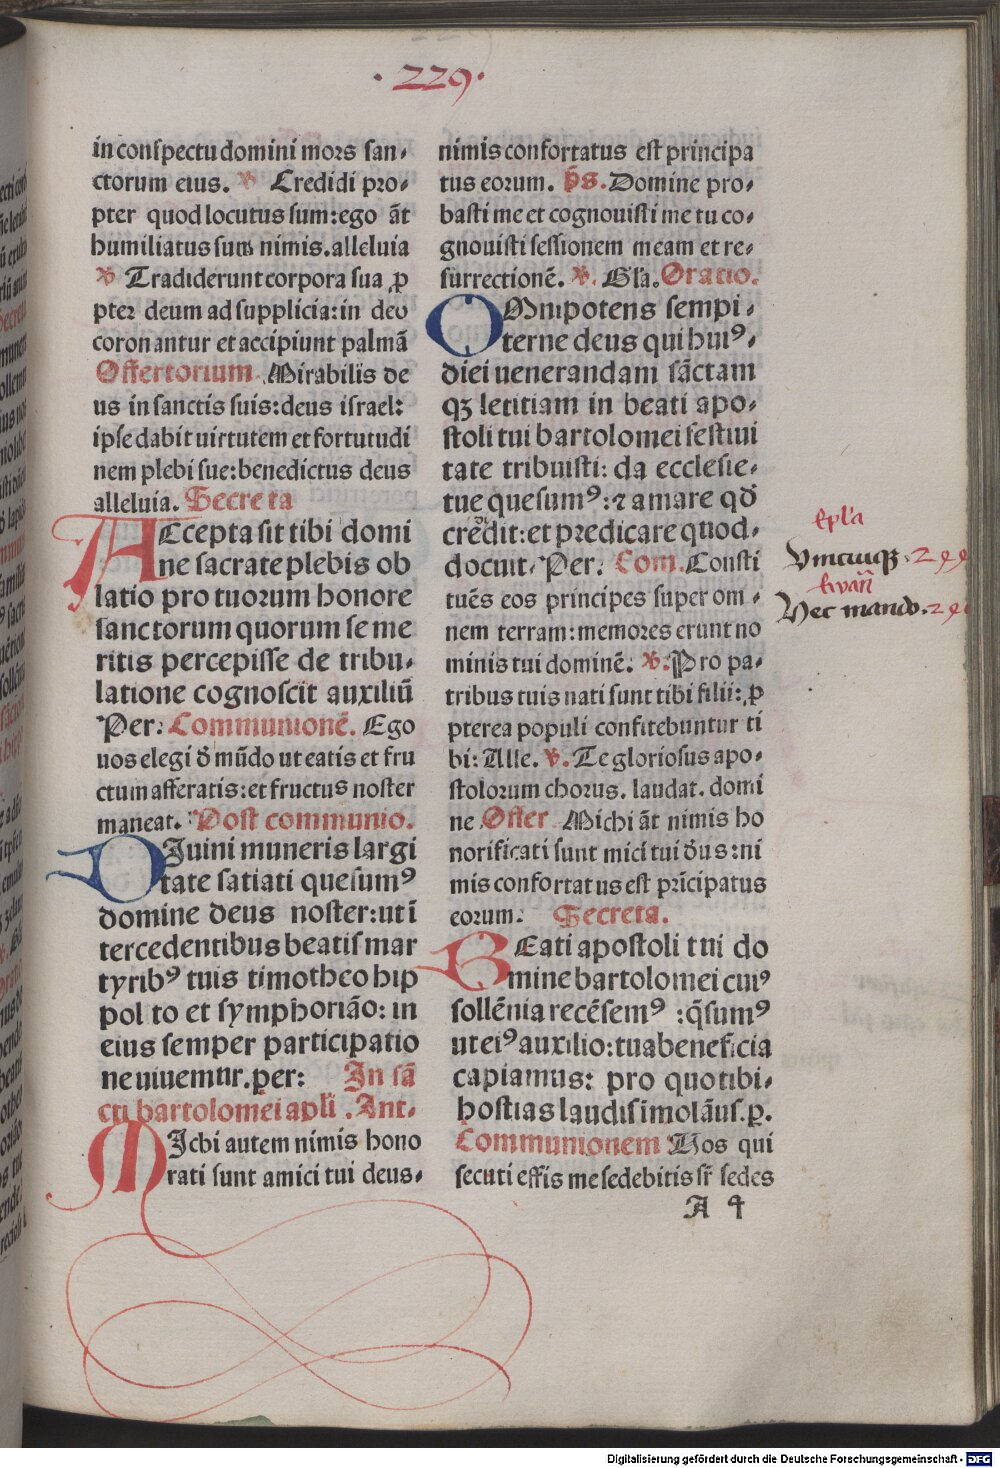 ·229·
in conspectu domini mors san-
ctorum eius. ℣ Credidi pro-
pter quod locutus sum:ego āt
humiliatus sum nimis.alleluia
℣ Tradiderunt corpora sua ꝓ
pter deum ad supplicia:in deo
coronantur et accipiunt palmā
Offertorium Mirabilis de
us in sanctis suis:deus israel:
ipse dabit uirtutem et fortutudi
nem plebi sue:benedictus deus
alleluia. Secreta
ACcepta sit tibi domi
ne sacrate plebis ob
latio pro tuorum honore
sanctorum quorum se me
ritis percepisse de tribu-
latione cognoscit auxiliū
Per: Communionē. Ego
uos elegi d̄ mūdo ut eatis et fru
ctum afferatis:et fructus noster
maneat. Post communio.
DIuini muneris largi
tate satiati quesumꝰ
domine deus noster:ut ī
tercedentibus beatis mar
tyribꝰ tuis timotheo hip
polito et symphoriāo: in
eius semper participatio
ne uiuemur.per: In sā
cti bartolomei apłi .Ant.
MIchi autem nimis hono
rati sunt amici tui deus-
nimis confortatus est principa
tus eorum. p̄s. Domine pro-
basti me et cognouisti me tu co-
gnouisti sessionem meam et re-
surrectionē. ℣. Gła. Oratio.
OMnipotens sempi-
terne deus qui huiꝰ-
diei uenerandam sāctam
qꝫ letitiam in beati apo-
stoli tui bartolomei festiui
tate tribuisti: da ecclesie-
tue quesumꝰ:⁊ amare qd̄
credit:et predicare quod-
docuit. Per. Com. Consti
tuēs eos principes super om-
nem terram:memores erunt no
minis tui dominē. ℣. Pro pa-
tribus tuis nati sunt tibi filii: ꝓ
pterea populi confitebuntur ti
bi: Alle. ℣. Te gloriosus apo-
stolorum chorus. laudat. domi
ne Offer Michi āt nimis ho
norificati sunt mici tui d̄us:ni
mis confortatus est prīcipatus
eorum: Secreta.
BEati apostoli tui do
mine bartolomei cuiꝰ
sollēnia recēsemꝰ :q̄sumꝰ
ut eiꝰ auxilio:tua beneficia
capiamus: pro quo tibi-
hostias laudis imolāus.ꝑ.
Communionem Uos qui
secuti estis me sedebitis sr̄ sedes
A ꝗ
epl'a
Vnicuiqꝫ.
Ewāñ
Hec mando.
Digitalisierung gefördert durch die Deutsche Forschungsgemeinschaft - DFG